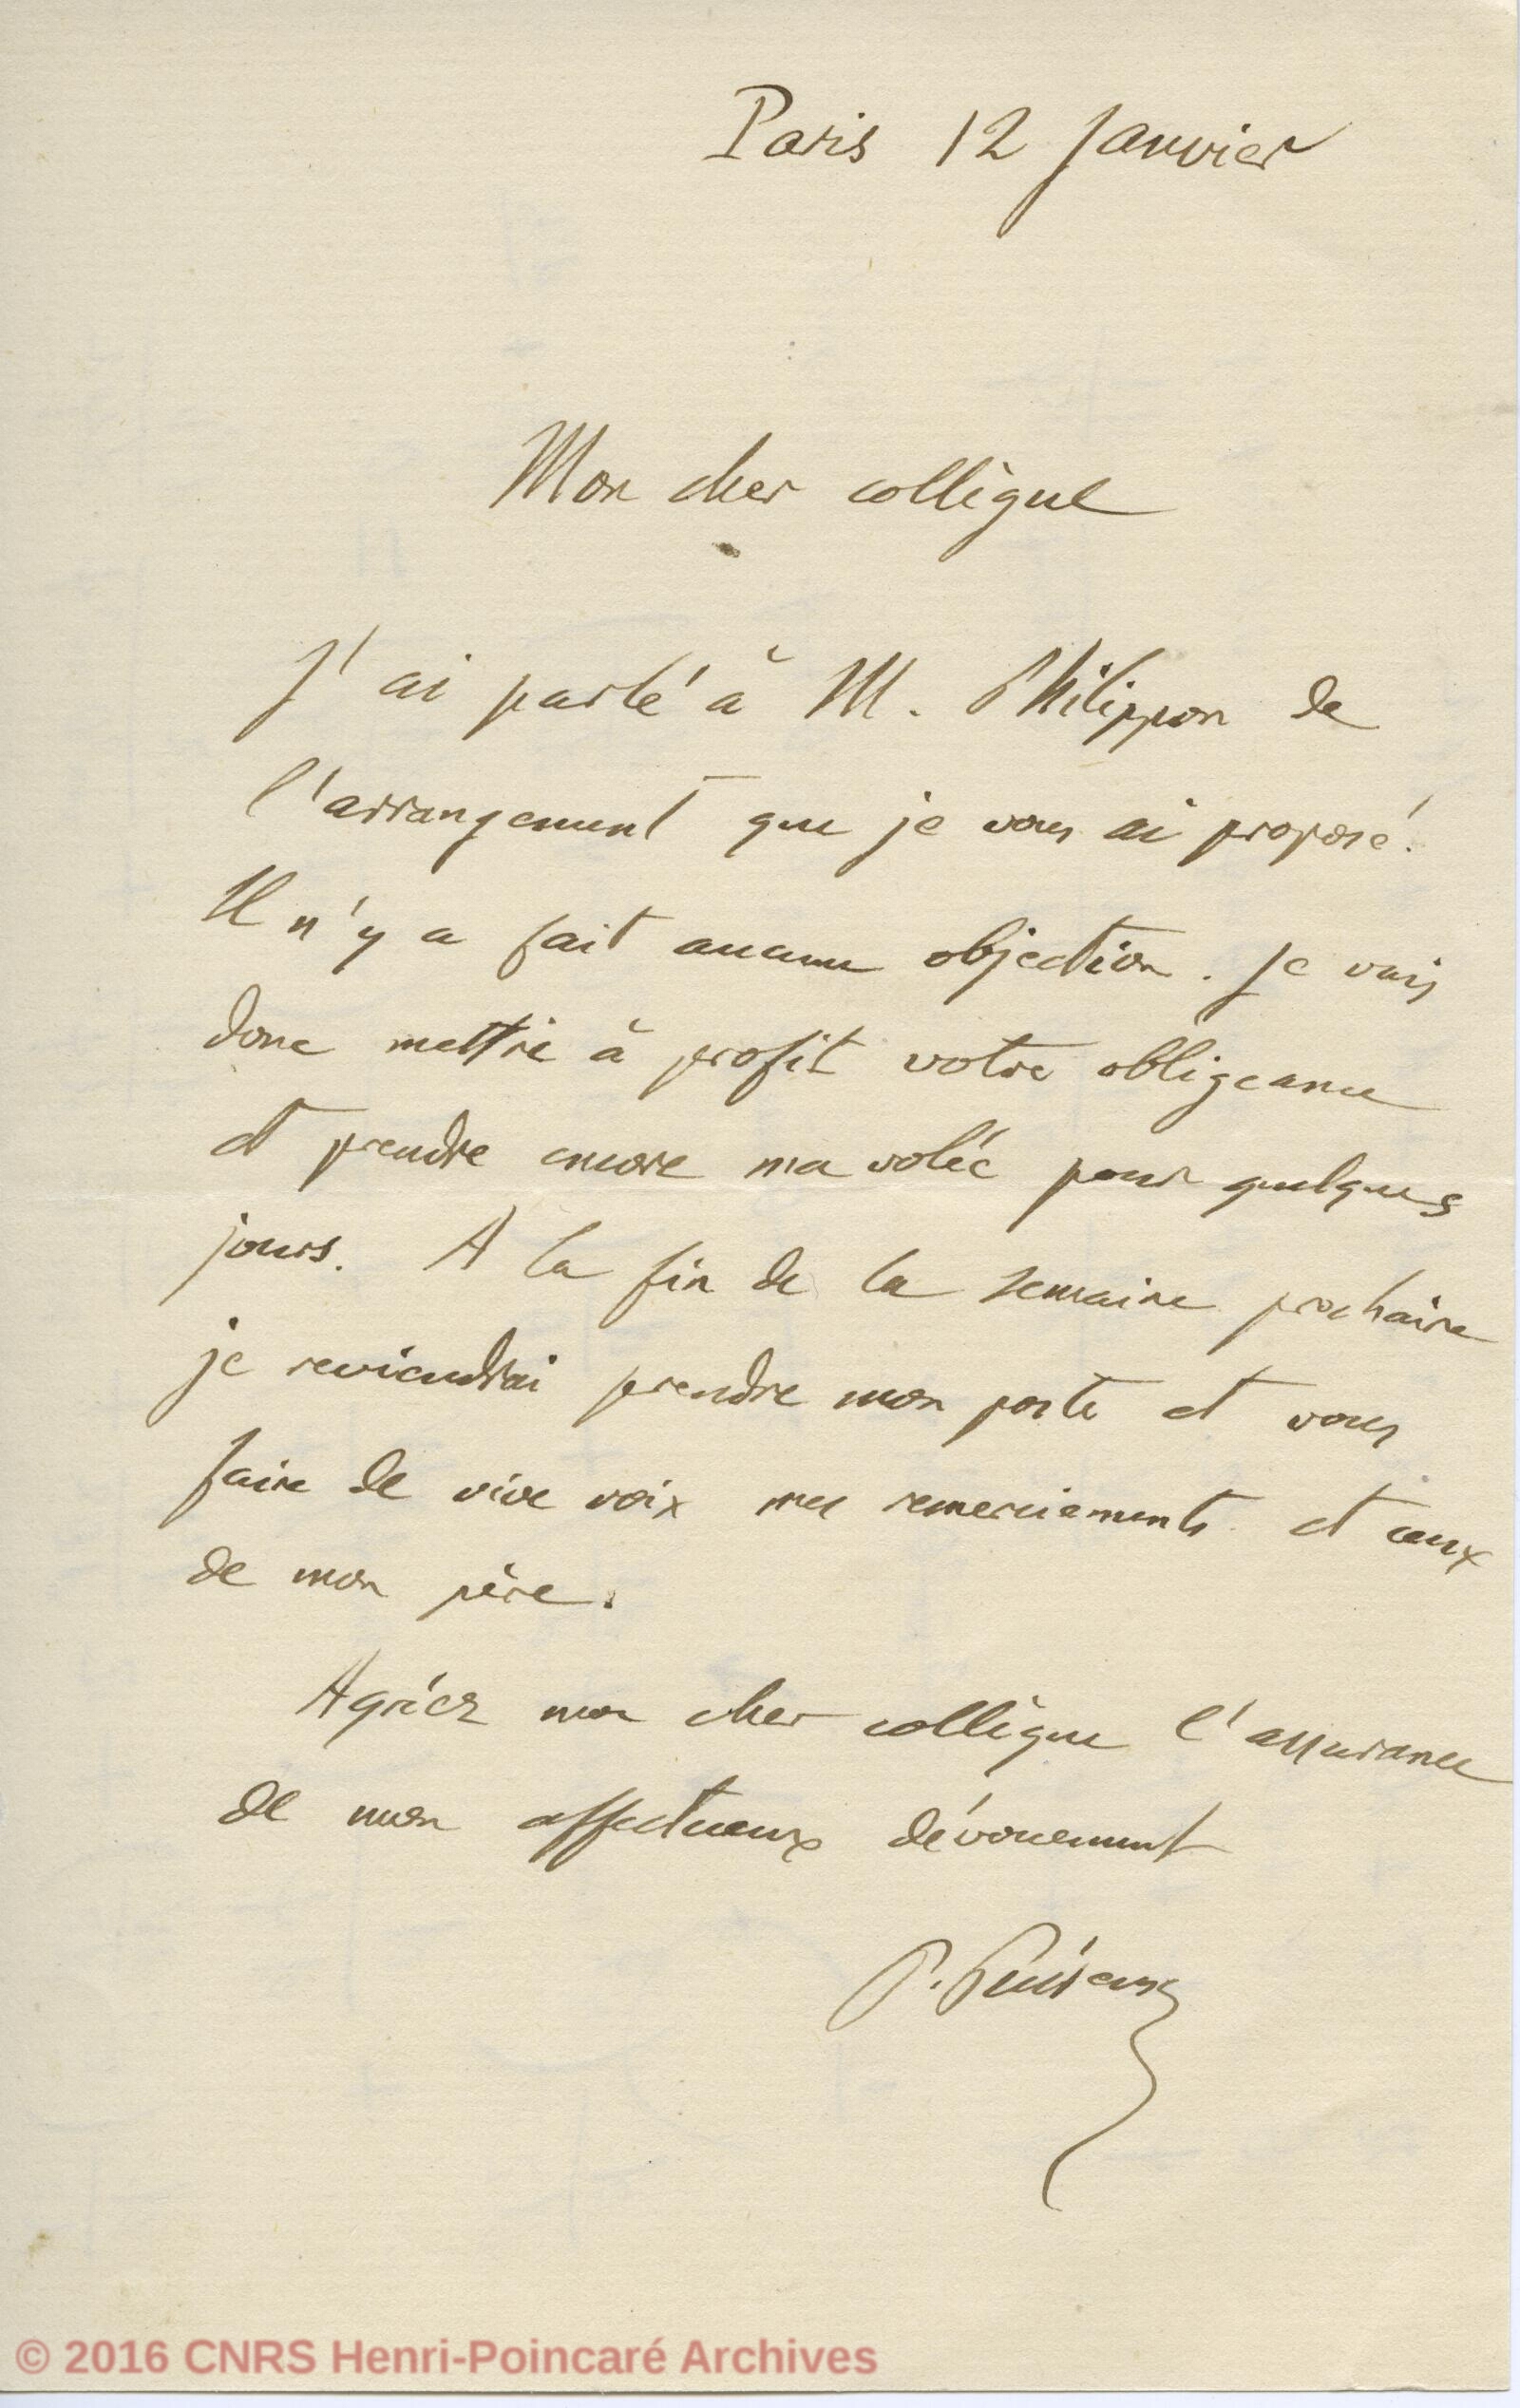 Paris 12 Janvier
Mon cher collègue
J'ai parlé à M. Philippon de
l'arrangement que je vous ai proposé.
Il n'y a fait aucune objection. Je vais
donc mettre à profit votre obligeance
et prendre encore ma volée pour quelques
jours. A la fin de la semaine prochaine
je reviendrai prendre mon poste et vous
faire de vive voix mes remerciements et ceux
de mon père.
Agréez mon cher collègue l'assurance
de mon affectueux dévouement
P. Puiseux
© 2016 CNRS Henri-Poincaré Archives